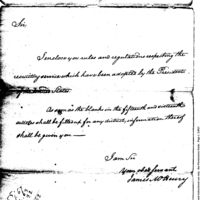 Sir
I enclose you rules and regulations respecting the
recruiting service which have been adopted by the President
of the United States
As soon as the blanks in the fifteenth and sixteenth
articles shall be filled up for any district, information thereof
shall be given you —
I am Sir
Your obed servant
James McHenry